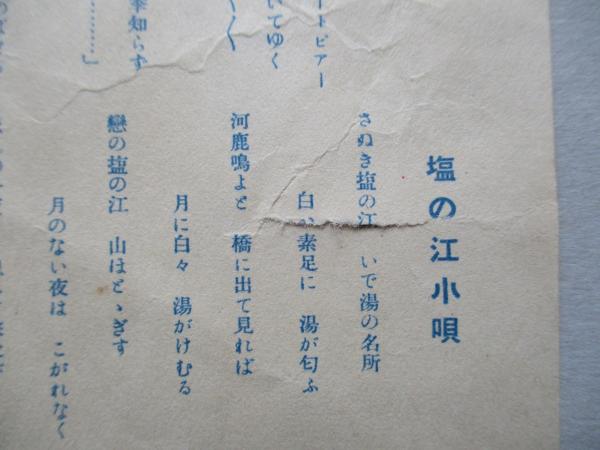 塩の江小唄
さぬき塩の江　いで湯の名所
白い素足に　湯が匂ふ
河鹿鳴よと　橋に出て見れば
月に白々　湯がけむる
戀の塩の江　山はとゝぎす
月のない夜は　こがれなく
ートピアー
いてゆく
〱
季知らず
…………」